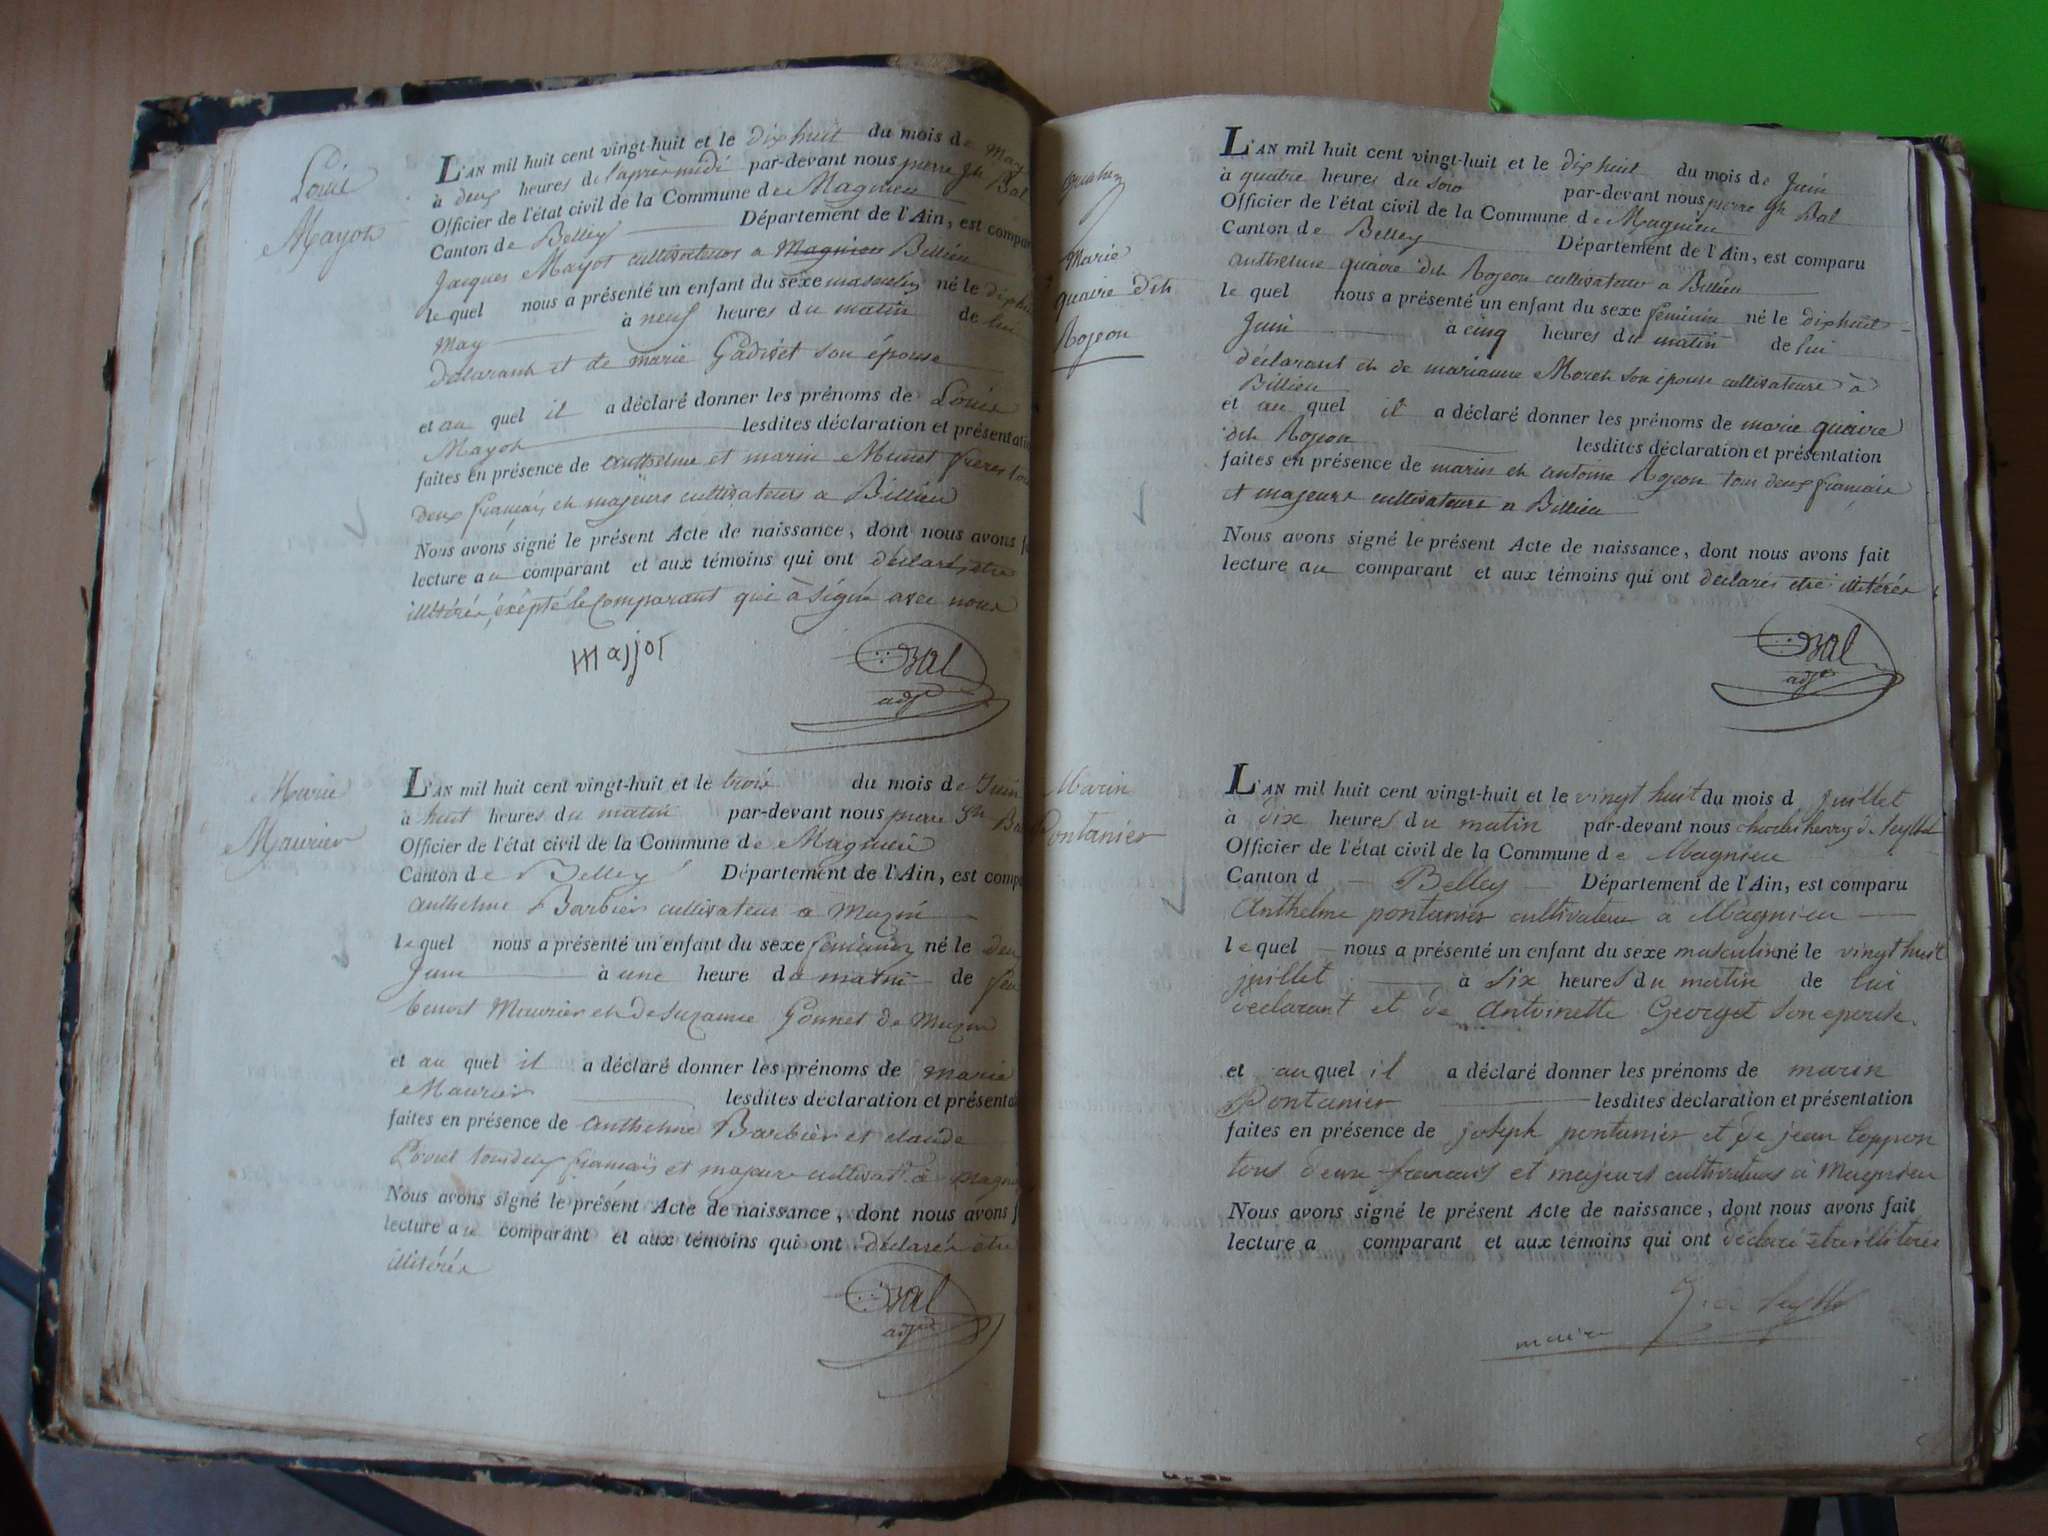 Louis
Mayot
L'AN mil huit cent vingt-huit et le dix huit du mois de May
à deux heures de l'après midi par-devant nous pierre Jh Bal
Officier de l'état civil de la Commune de Magnieu
Canton de Belley Département de l'Ain, est compar
Jacques Mayot cultivateur a Magnieu Billieu
le quel nous a présenté un enfant du sexe masculin né le dix hui
May à neuf heures du matin de lui
déclarant et de marie Gadivet son épouse
et au quel il a déclaré donner les prénoms de Louis
Mayot lesdites déclaration et présentati
faites en présence de anthelme et marin Munet freres tou
deux français et majeurs cultivateurs a Billieu
Nous avons signé le présent Acte de naissance, dont nous avons f
lecture au comparant et aux témoins qui ont déclarés etre
illitérés, éxépté le comparant qui à signé avec nous
majjot
Bal
adjt
Marie
Maurier
L'AN mil huit cent vingt-huit et le trois du mois de Juin
à huit heures du matin par-devant nous pierre Jh Ba
Officier de l'état civil de la Commune de Magnieu
Canton de Belley Département de l'Ain, est compa
anthelme Barbier cultivateur a Muzin
le quel nous a présenté un enfant du sexe feminin né le deu
Juin à une heure du matin de feu
benoit Maurier et de suzanne Gonnet de Muzin
et au quel il a déclaré donner les prénoms de marie
Maurier lesdites déclaration et présenta
faites en présence de anthelme Barbier et claude
tous deux français et majeurs cultivat. à magni
Nous avons signé le présent Acte de naissance, dont nous avons f
lecture au comparant et aux témoins qui ont déclarés etre
illitérés
Bal
adjt
Marie
quaire dit
Rojeon
L'AN mil huit cent vingt-huit et le dix huit du mois de Juin
à quatre heures du soir par-devant nous pierre Jh Bal
Officier de l'état civil de la Commune de Magnieu
Canton de Belley Département de l'Ain, est comparu
anthelme quaire dit Rojeon cultivateur a Billieu
le quel nous a présenté un enfant du sexe feminin né le dix huit
Juin à cinq heures du matin de lui
déclarant et de marianne Moret son épouse cultivateurs à
Billieu
et au quel il a déclaré donner les prénoms de marie quaire
dit Rojeon lesdites déclaration et présentation
faites en présence de marin et antoine Rojeon tous deux français
et majeurs cultivateurs a Billieu
Nous avons signé le présent Acte de naissance, dont nous avons fait
lecture au comparant et aux témoins qui ont déclarés etre illitérés
Bal
adjt
Marin
Pontanier
L'AN mil huit cent vingt-huit et le vingt huit du mois d juillet
à dix heures du matin par-devant nous charles henry de Seyssel
Officier de l'état civil de la Commune de Magnieu
Canton d Belley Département de l'Ain, est comparu
Anthelme pontanier cultivateur a Magnieu
le quel nous a présenté un enfant du sexe masculin né le vingt huit
juillet à six heures du matin de lui
declarant et de Antoinette Georget son epouse.
et au quel il a déclaré donner les prénoms de marin
Pontanier lesdites déclaration et présentation
faites en présence de joseph pontanier et de jean Coppon
tous deux francais et majeurs cultivateurs à Magnieu
Nous avons signé le présent Acte de naissance, dont nous avons fait
lecture a comparant et aux témoins qui ont déclaré etre illiteres
maire